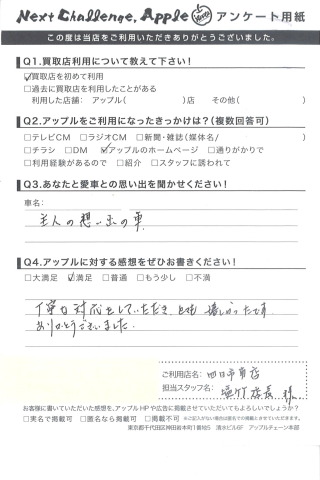 Next Challenge, Apple アンケート用紙
この度は当店をご利用いただきありがとうございました。
Q1.買取店利用について教えて下さい!
☑買取店を初めて利用
□過去に買取店を利用したことがある
利用した店舗： アップル(　　　)店　その他(　　　)
Q2.アップルをご利用になったきっかけは?(複数回答可)
□テレビCM □ラジオCM □新聞・雑誌(媒体名/　　　)
□チラシ □DM ☑アップルのホームページ □通りがかりで
□利用経験があるので □紹介 □スタッフに誘われて
Q3.あなたと愛車との思い出を聞かせください!
車名：
主人の想い出の車
Q4.アップルに対する感想をぜひお書きください!
□大満足 ☑満足 □普通 □もう少し □不満
丁寧な対応をしていただき とても 嬉しかったです
ありがとうございました。
ご利用店名： 四日市東店
担当スタッフ名： 店長 様
お客様に書いていただいた感想を、アップルHPや広告に掲載させていただいてもよろしいでしょうか?
□実名で掲載可 □匿名なら掲載可 □掲載不可 ※ご記入がない場合は匿名での掲載とさせていただきます。
東京都千代田区神田岩本町1番地5 清水ビル6F アップルチェーン本部